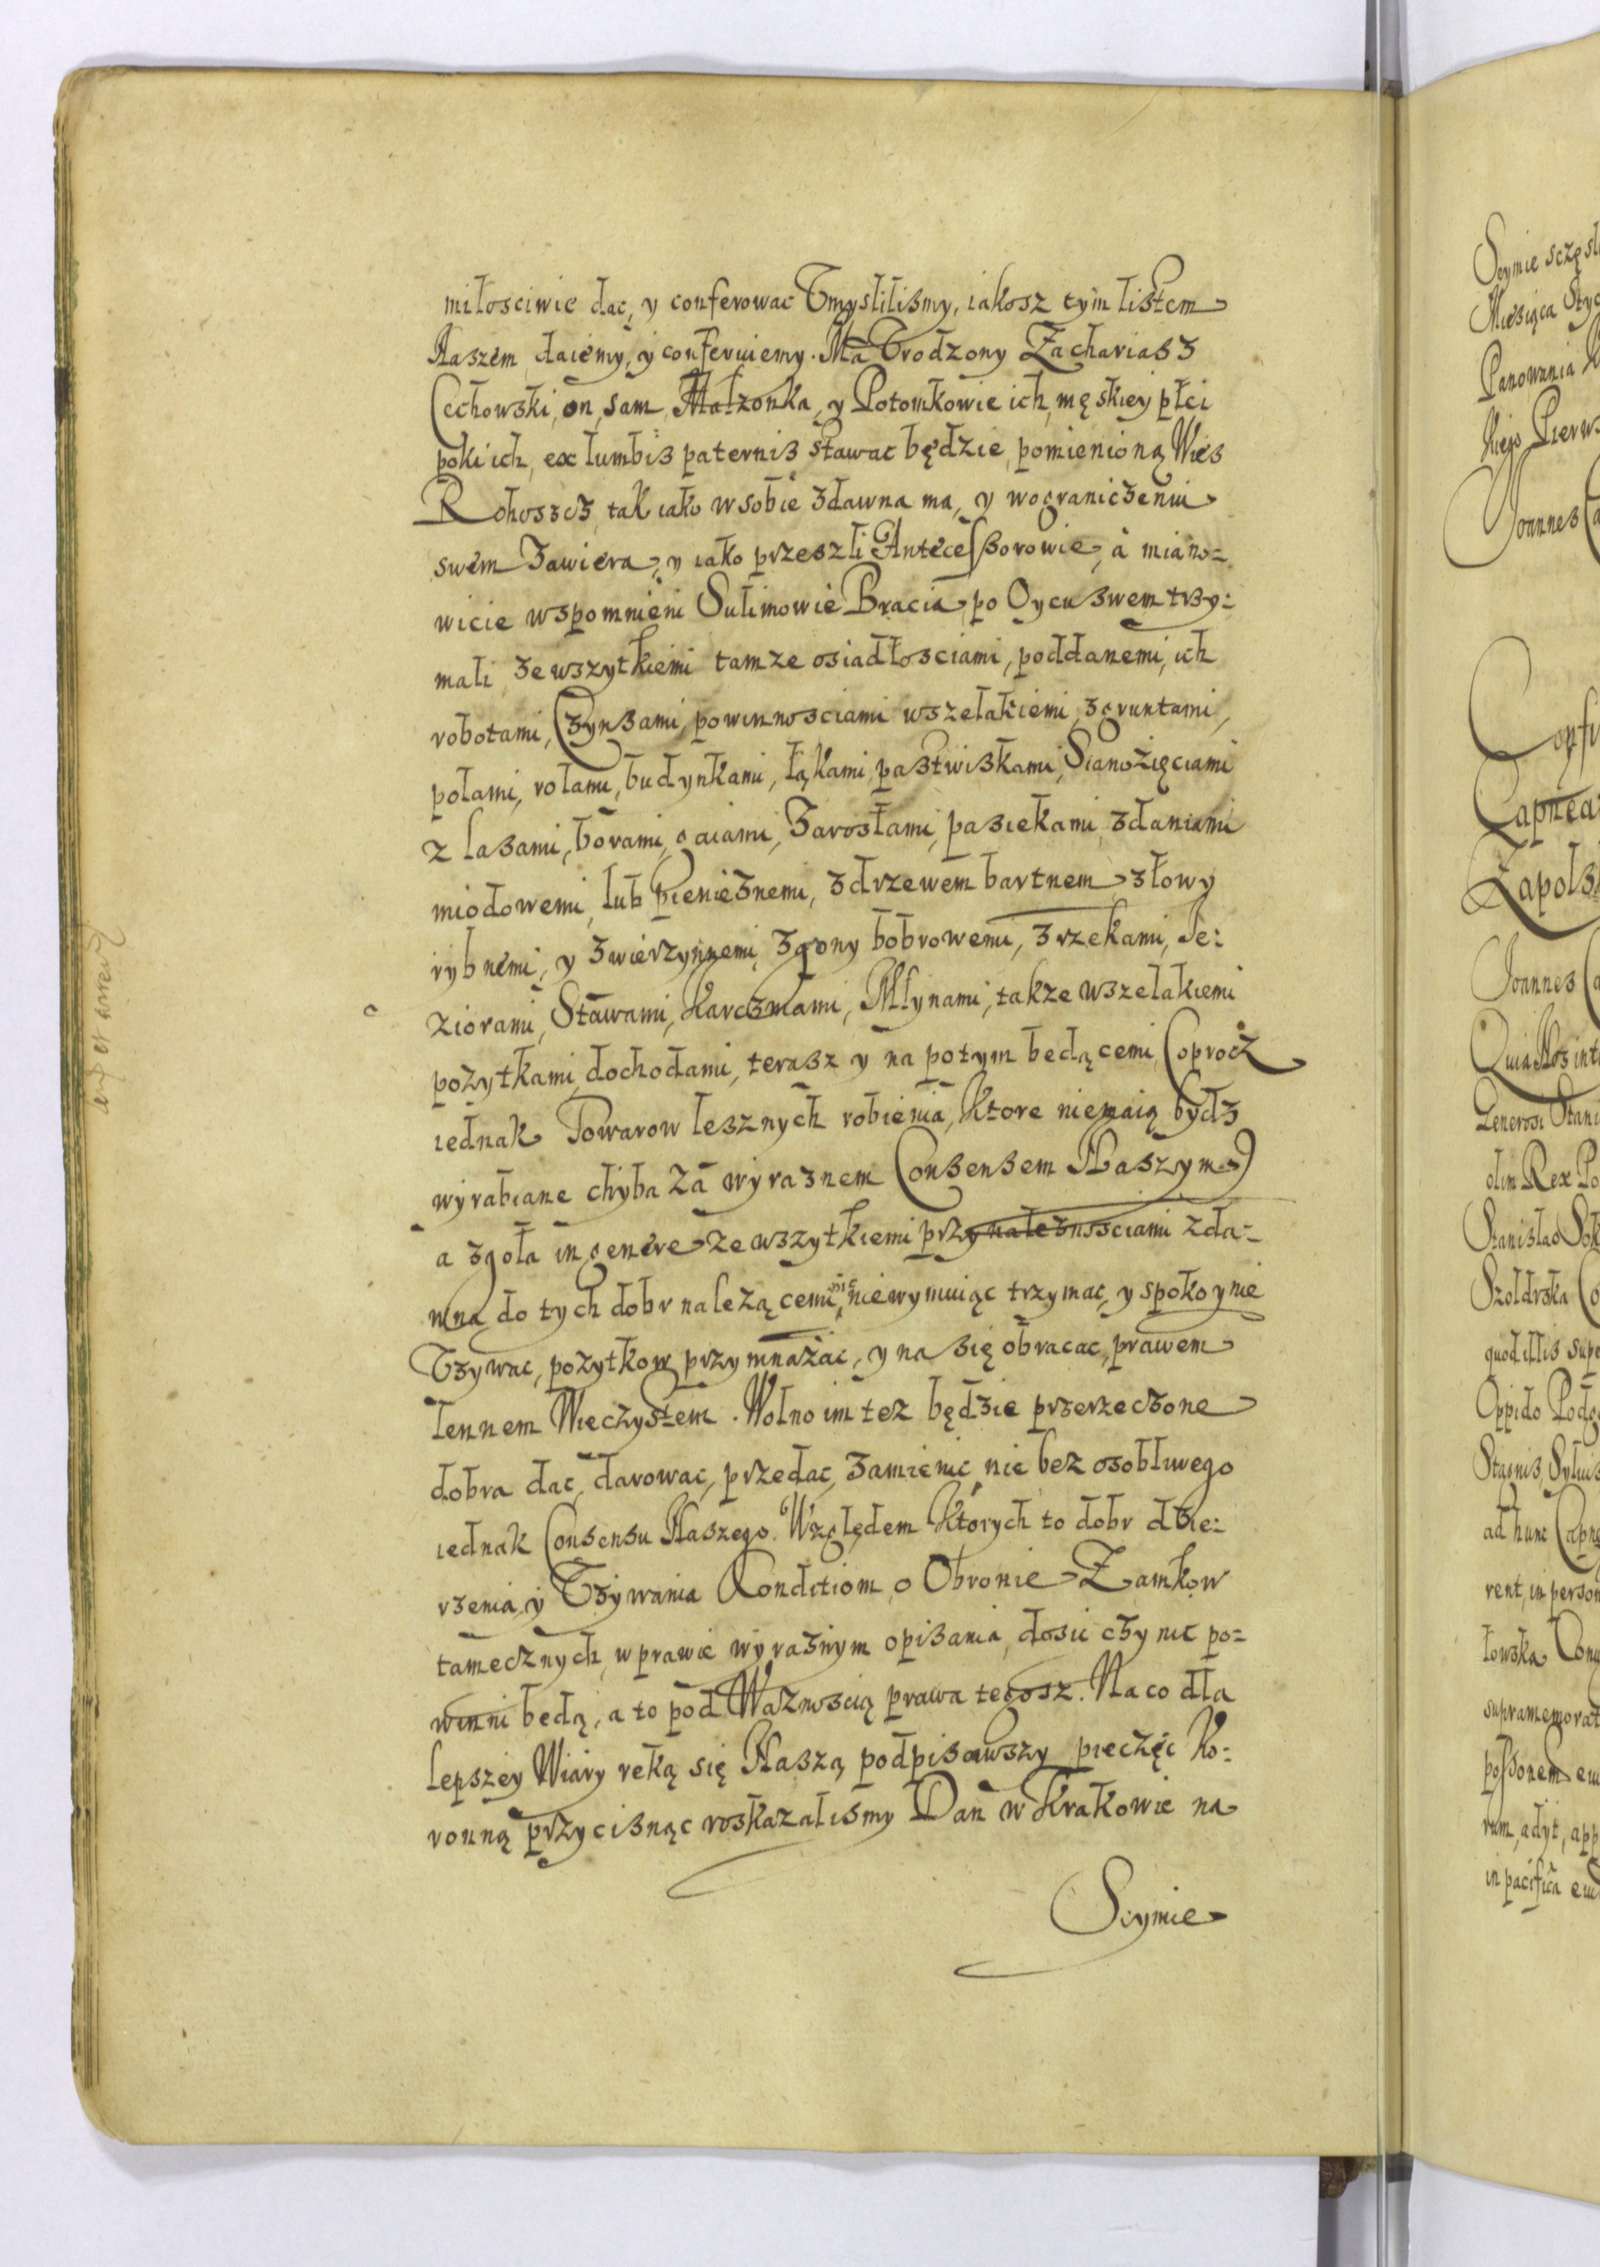 miłosciwie dac, y conferowac Vmysliliszmy, iakosz tym listem
Naszem daiemy, y conferuiemy. Ma Vrodzony Zachariasz
Cechowski, on sam Małzonka, y Potomkowie ich męskiey płci
poki ich ex lumbis paternis stawac będzie, pomienioną Wies
Rohoszcz, tak iako w sobie zdawna ma, y w ograniczeniu
swem zawiera, y iako przeszli Antecessorowie, a miano=
wicie wspomnieni Sulimowie Bracia po Oycu swem trzy=
mali ze wszytkiemi tamze osiadłosciami, poddanemi, ich
robotami, Czynszami, powinnosciami wszelakiemi, z gruntami,
polami, rolami, budynkami, łąkami, pastwiskami, Sianożięciami
z lasami, borami, gaiami, Zaroslami, pasiekami, zdaniami
miodowemi, lub pienieznemi, z drzewem bartnem, z łowy
rybnemi, y zwierzynnemi, z gony bobrowemi, z rzekami, Je=
ziorami, Stawami, Karczmami, Młynami, takze wszelakiemi
pozytkami, dochodami, terasz y na potym będącemi (oprocz
iednak Towarow lesznych robienia, ktore niemaią bydz
wyrabiane chyba za wyraznem Consensem Naszym)
a zgoła in genere ze wszytkiemi przynaleznosciami zda=
wna do tych dobr nalezącemi, nic niewymuiąc trzymac, y spokoynie
Vzywac, pozytkow przymnażac, y na się obracac, prawem
lennem Wieczystem. Wolno im tez będzie przerzeczone
dobra dac, darowac, przedac, zamienic nie bez osobliwego
iednak Consensu Naszego. Względem ktorych to dobr dzie=
rzenia, y Vzywania Konditiom o Obronie Zamkow
tamecznych, w prawie wyraznym opisania, dosic czynic po=
winni będą, a to pod Waznoscią prawa tegosz. Na co dla
lepszey Wiary reką się Naszą podpisawszy pieczęc Ko=
ronną przycisnąc roskazalismy Dan w Krakowie na
Seymie
Joannes
Zapolsk
Joannes
olim Rex Po
Szołdrska
quod illis supe
Oppido
Stagnis, Sylvis
ad hunc
rent, in person
supramemorat
rum, adyt, app